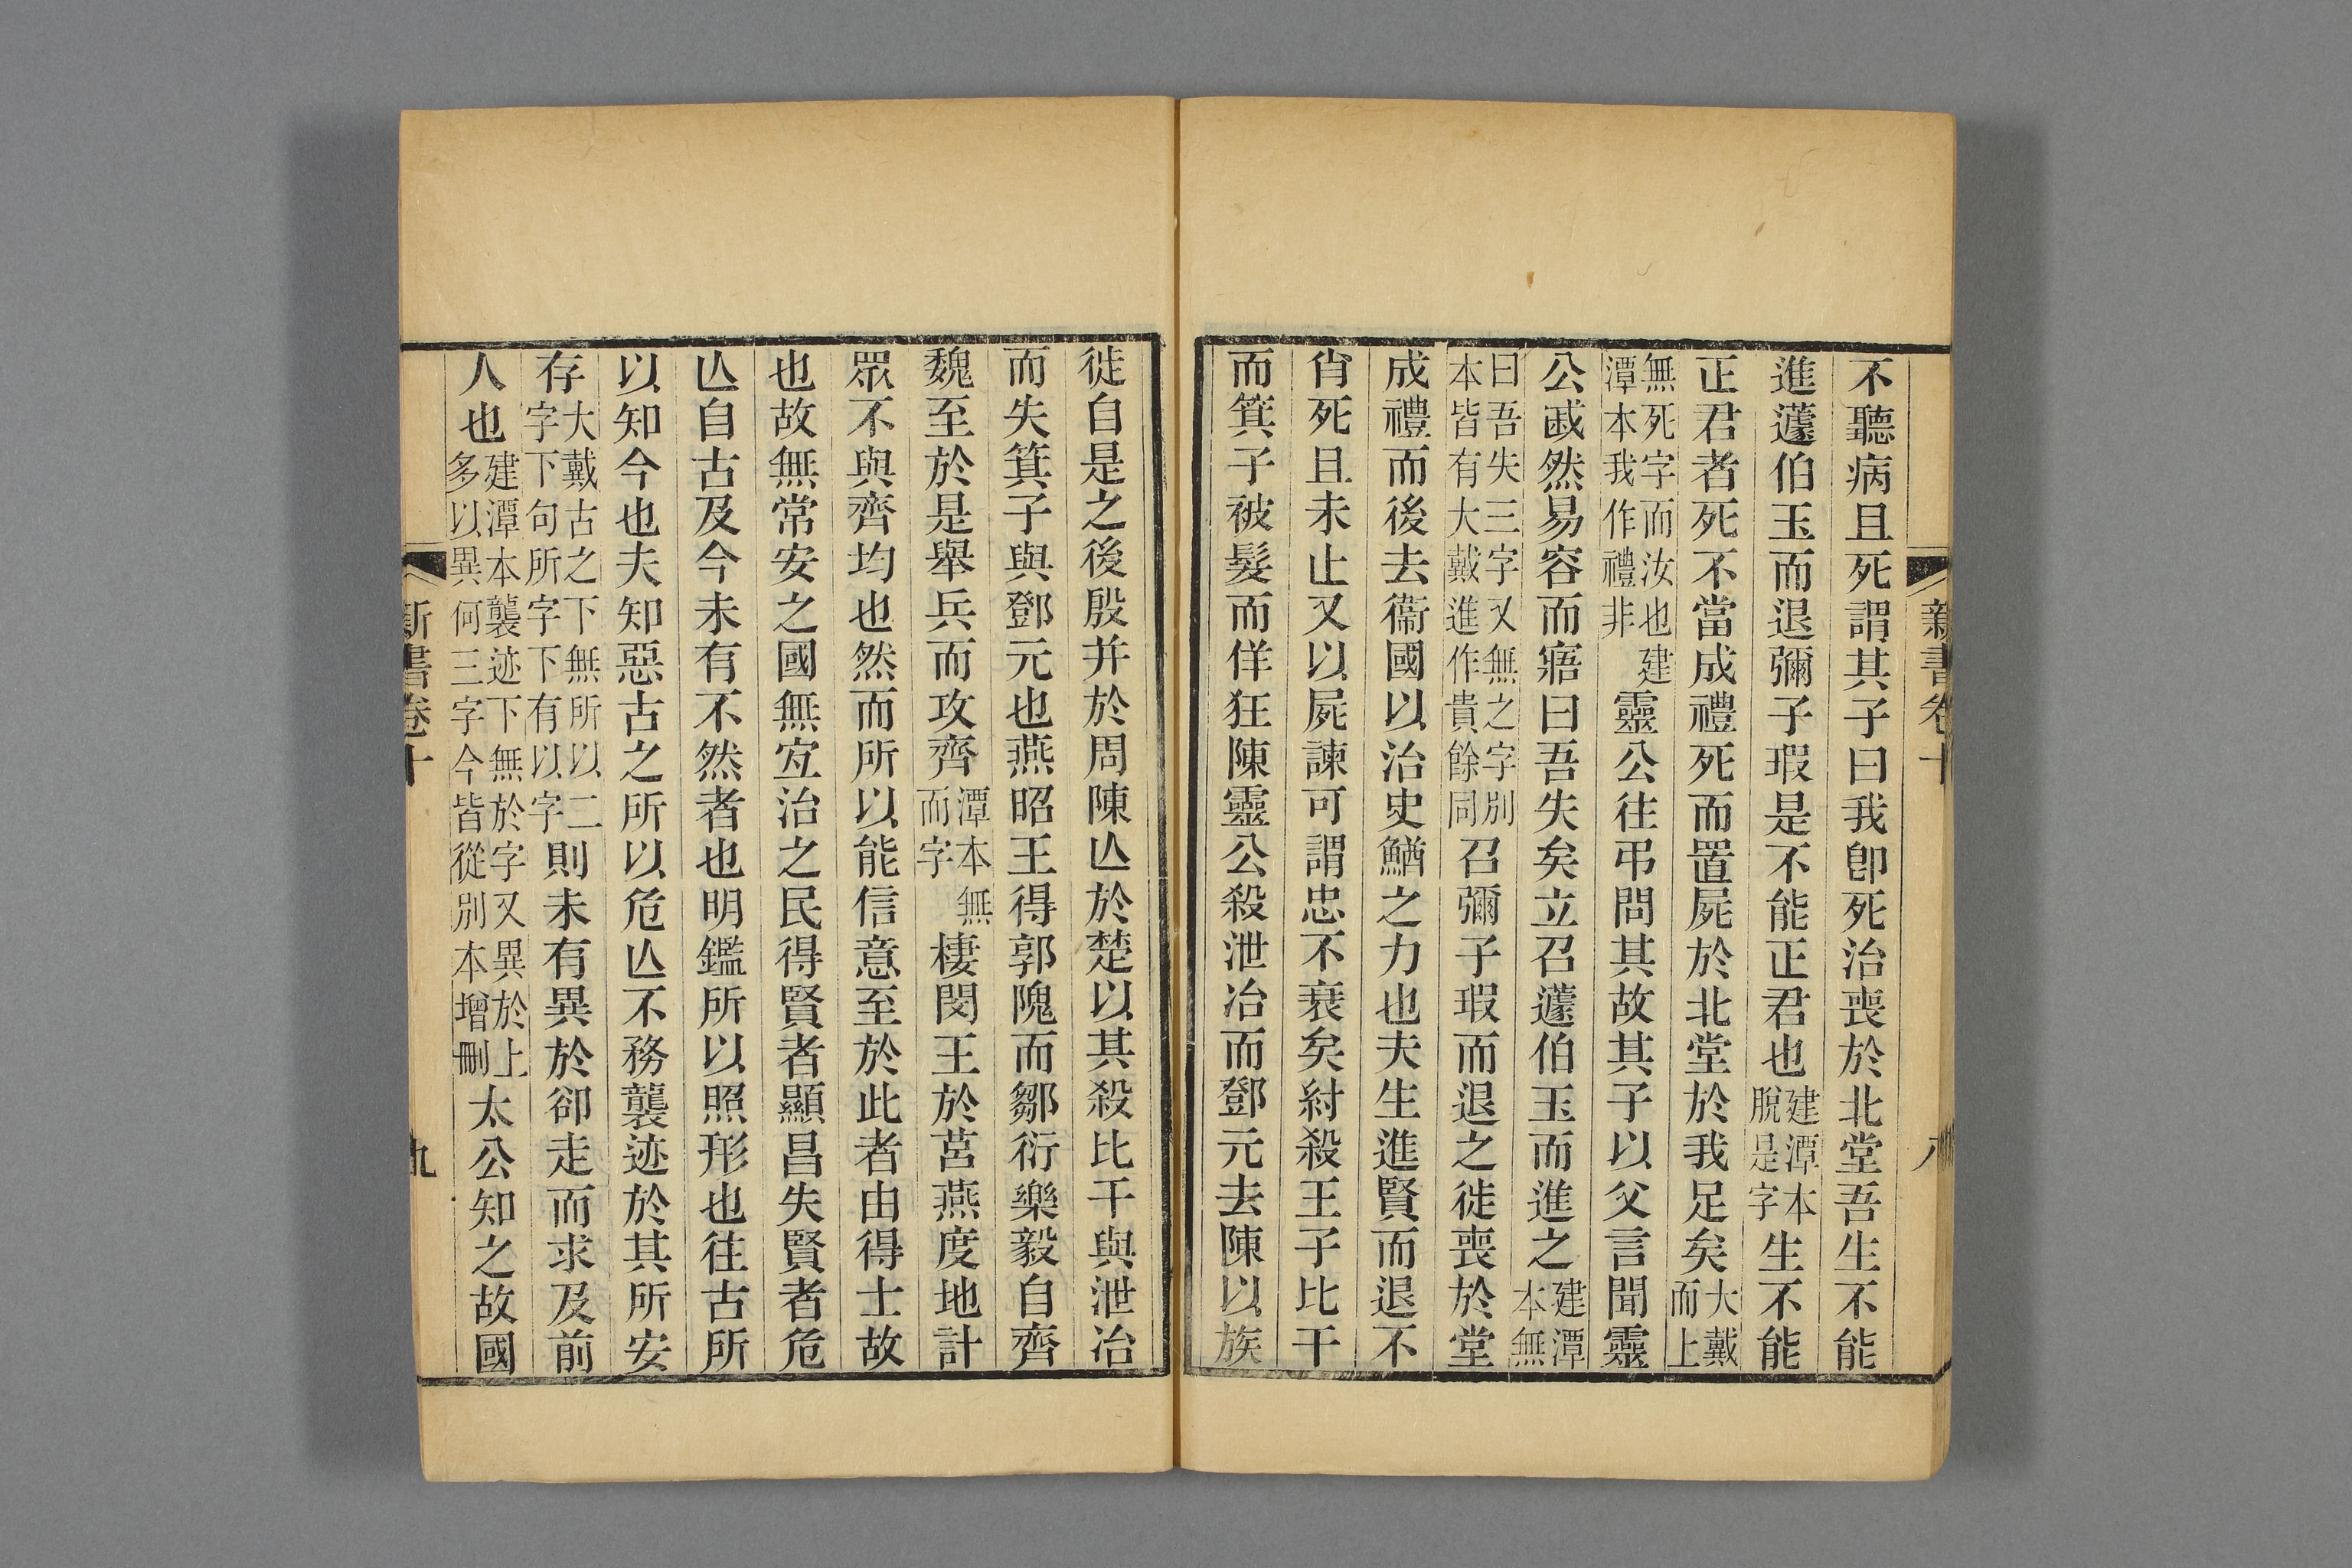 新書卷十　八
不聽病且死謂其子曰我卽死治喪於北堂吾生不能
進蘧伯玉而退彌子瑕是不能正君也建潭本脫是字生不能
正君者死不當成禮死而置屍於北堂於我足矣大戴而上
無死字而汝也建潭本我作禮非靈公往弔問其故其子以父言聞靈
公戚然易容而寤曰吾失矣立召蘧伯玉而進之建潭本無
曰吾失三字又無之字別本皆有大戴進作貴餘同召彌子瑕而退之徙喪於堂
成禮而後去衞國以治史鰌之力也夫生進賢而退不
肖死且未止又以屍諫可謂忠不衰矣紂殺王子比干
而箕子被髮而佯狂陳靈公殺泄冶而鄧元去陳以族
徙自是之後殷并於周陳亾於楚以其殺比干與泄冶
而失箕子與鄧元也燕昭王得郭隗而鄒衍樂毅自齊
魏至於是舉兵而攻齊潭本無而字棲閔王於莒燕度地計
眾不與齊均也然而所以能信意至於此者由得士故
也故無常安之國無宐治之民得賢者顯昌失賢者危
亾自古及今未有不然者也明鑑所以照形也往古所
以知今也夫知惡古之所以危亾不務襲迹於其所安
存大戴古之下無所以二字下句所字下有以字則未有異於卻走而求及前
人也建潭本襲迹下無於字又異於上多以異何三字今皆從別本增刪太公知之故國
新書卷十　九